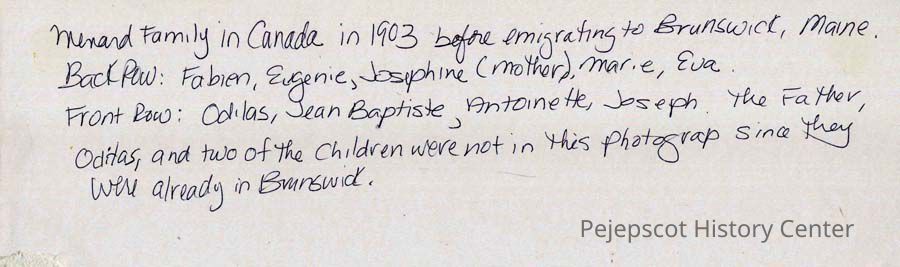 Menard Family in Canada in 1903 before emigrating to Brunswick, Maine.
Back Row: Fabien, Eugenie, Josephine (mother), Marie, Eva.
Front Row: Odilas, Jean Baptiste, Antoinette, Joseph. The Father,
Odilas, and two of the children were not in this photograp since they
were already in Brunswick.
Pejepscot History Center